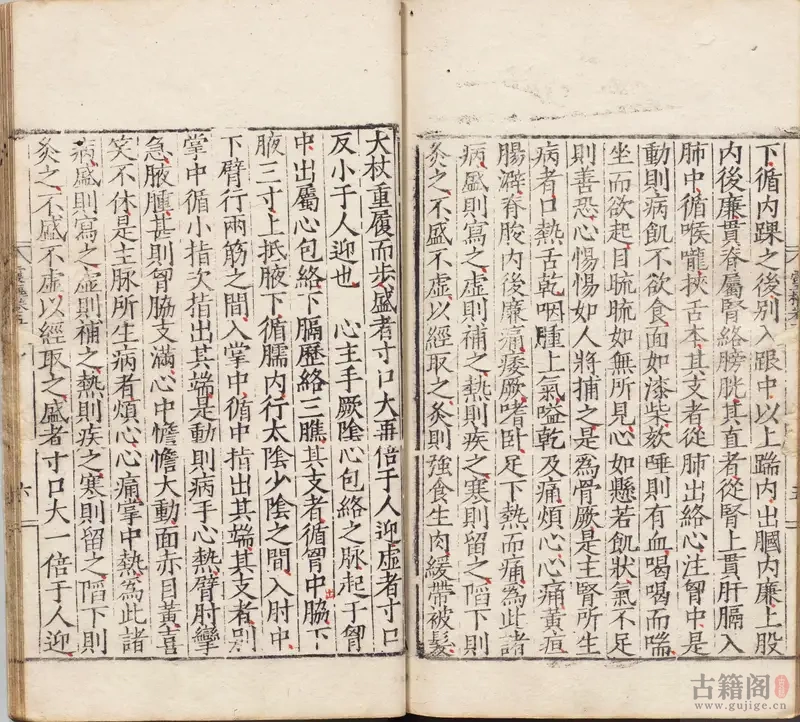 下循內踝之後別入跟中以上踹內出膕內廉上股
內後廉貫脊屬腎絡膀胱其直者從腎上貫肝膈入
肺中循喉嚨挾舌本其支者從肺出絡心注胷中是
動則病飢不欲食面如漆柴欬唾則有血喝喝而喘
坐而欲起目䀮䀮如無所見心如懸若飢狀氣不足
則善恐心惕惕如人將捕之是為骨厥是主腎所生
病者口熱舌乾咽腫上氣嗌乾及痛煩心心痛黃疸
腸澼脊股內後廉痛痿厥嗜卧足下熱而痛為此諸
病盛則寫之虛則補之熱則疾之寒則留之陷下則
灸之不盛不虛以經取之灸則強食生肉緩帶被髮
大杖重履而步盛者寸口大再倍于人迎虛者寸口
反小于人迎也 心主手厥陰心包絡之脉起于胷
中出屬心包絡下膈歷絡三膲其支者循胷中出脇下
腋三寸上抵腋下循臑內行太陰少陰之間入肘中
下臂行兩筋之間入掌中循中指出其端其支者別
掌中循小指次指出其端是動則病手心熱臂肘攣
急腋腫甚則胷脇支滿心中憺憺大動面赤目黃喜
笑不休是主脉所生病者煩心心痛掌中熱為此諸
病盛則寫之虛則補之熱則疾之寒則留之陷下則
灸之不盛不虛以經取之盛者寸口大一倍于人迎
六
古籍阁
www.gujige.cn